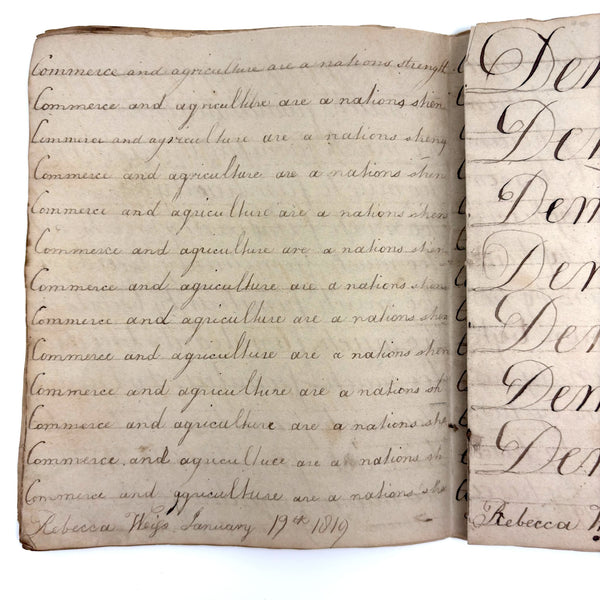 Commerce and agriculture are a nations strengt
Commerce and agriculture are a nations stren
Commerce and agriculture are a nations streng
Commerce and agriculture are a nations stren
Commerce and agriculture are a nations stren
Commerce and agriculture are a nations stren
Commerce and agriculture are a nations stren
Commerce and agriculture are a nations stren
Commerce and agriculture are a nations stren
Commerce and agriculture are a nations st
Commerce and agriculture are a nations stre
Commerce and agriculture are a nations st
Commerce and agriculture are a nations stre
Rebecca January 19th 1819
Dem
Dem
Dem
Dem
Dem
Dem
Dem
Rebecca W